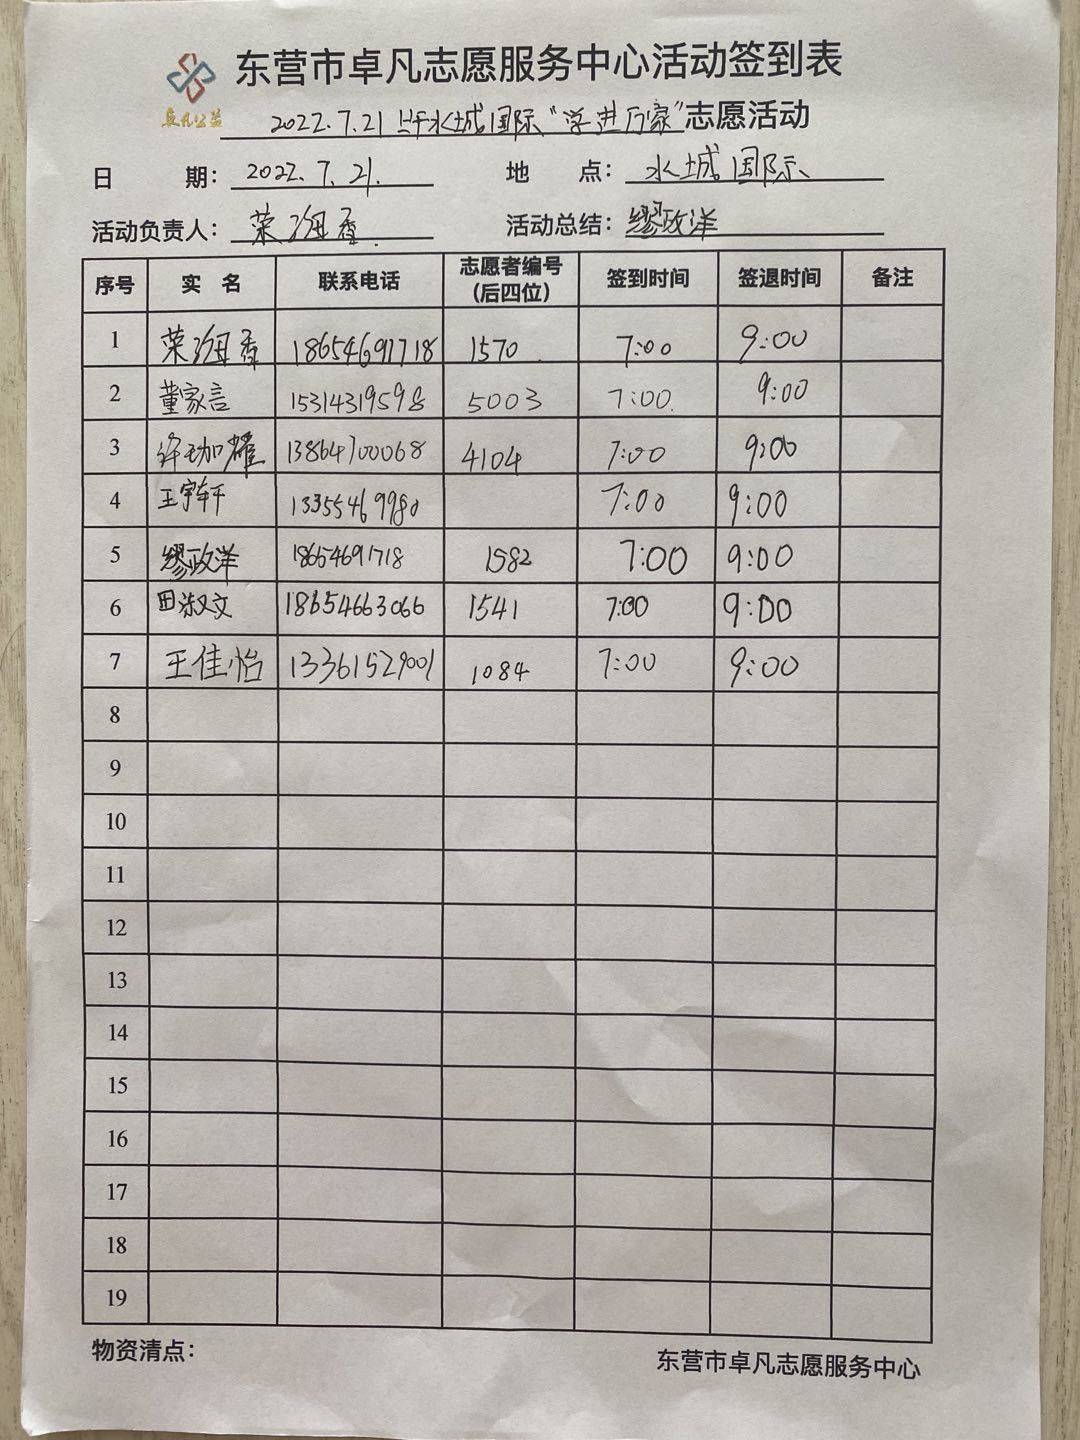 东营市卓凡志愿服务中心活动签到表
卓凡公益
2022.7.21 水城国际“学进万家”志愿活动
日 期: 2022.7.21. 地 点: 水城国际
活动负责人: 荣海香 活动总结: 缪政洋
序号 实 名 联系电话 志愿者编号(后四位) 签到时间 签退时间 备注
1 荣海香 18654691718 1570 7:00 9:00
2 董家言 15314319598 5003 7:00 9:00
3 许珈耀 13864700068 4104 7:00 9:00
4 王宇轩 13355469980 7:00 9:00
5 缪政洋 18654691718 1582 7:00 9:00
6 田淑文 18654663066 1541 7:00 9:00
7 王佳怡 13361529001 1084 7:00 9:00
8
9
10
11
12
13
14
15
16
17
18
19
物资清点:
东营市卓凡志愿服务中心